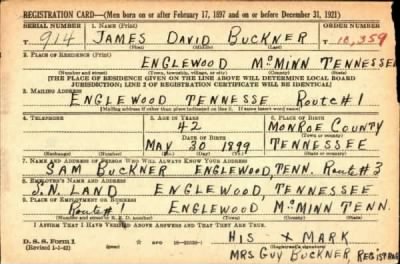 REGISTRATION CARD—(Men born on or after February 17, 1897 and on or before December 31, 1921)
SERIAL NUMBER 1. NAME (Print) ORDER NUMBER
914 JAMES DAVID BUCKNER 10,359
(First) (Middle) (Last)
2. PLACE OF RESIDENCE (Print)
ENGLEWOOD McMINN TENNESSEE
(Number and street) (Town, township, village, or city) (County) (State)
[THE PLACE OF RESIDENCE GIVEN ON THE LINE ABOVE WILL DETERMINE LOCAL BOARD
JURISDICTION; LINE 2 OF REGISTRATION CERTIFICATE WILL BE IDENTICAL]
3. MAILING ADDRESS
ENGLEWOOD TENNESSE ROUTE #1
[Mailing address if other than place indicated on line 2. If same insert word same]
4. TELEPHONE 5. AGE IN YEARS 6. PLACE OF BIRTH
42 MONROE COUNTY
DATE OF BIRTH
MAY 30 1899 TENNESSEE
7. NAME AND ADDRESS OF PERSON WHO WILL ALWAYS KNOW YOUR ADDRESS
SAM BUCKNER ENGLEWOOD, TENN. ROUTE #3
8. EMPLOYER'S NAME AND ADDRESS
J.N. LAND ENGLEWOOD, TENNESSEE
9. PLACE OF EMPLOYMENT OR BUSINESS
ROUTE #1 ENGLEWOOD, McMINN TENN.
(Number and street or R. F. D. number) (Town) (County) (State)
I AFFIRM THAT I HAVE VERIFIED ABOVE ANSWERS AND THAT THEY ARE TRUE.
D. S. S. Form 1 HIS X MARK
(Revised 1-1-42) (Registrant's signature)
MRS GUY BUCKNER REGISTRAR